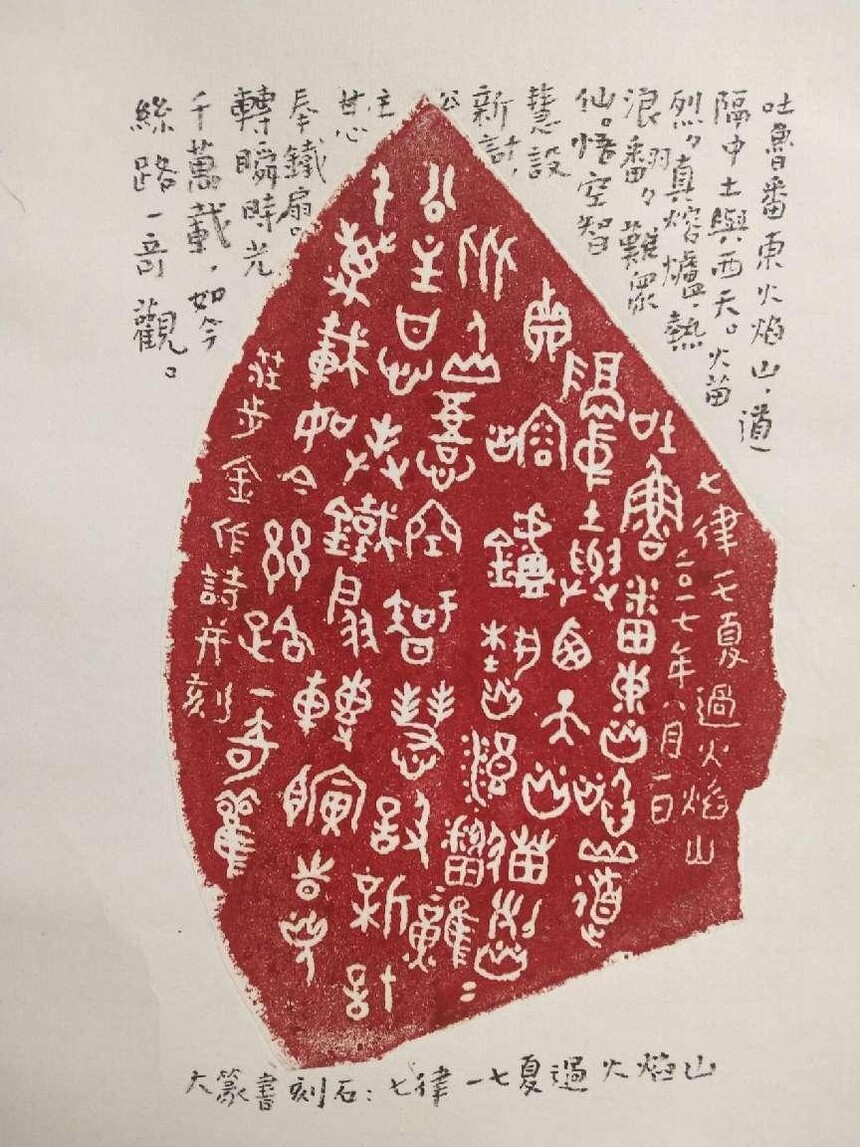 吐魯番東火焰山,道
隔中土與西天。火苗
烈々真熔爐,熱
浪翻々難眾
仙。悟空智
慧設
新計,
公
主
甘心
奉鐵扇。
轉瞬時光
千萬載,如今
絲路一奇觀。
七律一七夏過火焰山
二〇一七年八月一日
吐魯番東火焰山道
隔中土與西天火苗烈
真熔爐熱浪翻難
眾仙悟空智慧設新計
公主甘心奉鐵扇轉瞬時光
千萬載如今絲路一奇觀
莊步金作詩并刻
大篆書刻石:七律一七夏過火焰山